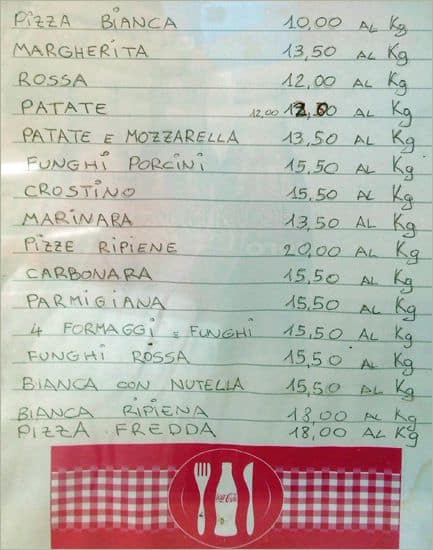 PIZZA BIANCA 10,00 AL Kg
MARGHERITA 13,50 AL Kg
ROSSA 12,00 AL Kg
PATATE 12,00 12,00 AL Kg
PATATE E MOZZARELLA 13,50 AL Kg
FUNGHI PORCINI 15,50 AL Kg
CROSTINO 15,50 AL Kg
MARINARA 13,50 AL Kg
PIZZE RIPIENE 20,00 AL Kg
CARBONARA 15,50 AL Kg
PARMIGIANA 15,50 AL Kg
4 FORMAGGI E FUNGHI 15,50 AL Kg
FUNGHI ROSSA 15,50 AL Kg
BIANCA CON NUTELLA 15,50 AL Kg
BIANCA RIPIENA 18,00 AL Kg
PIZZA FREDDA 18,00 AL Kg
Coca-Cola